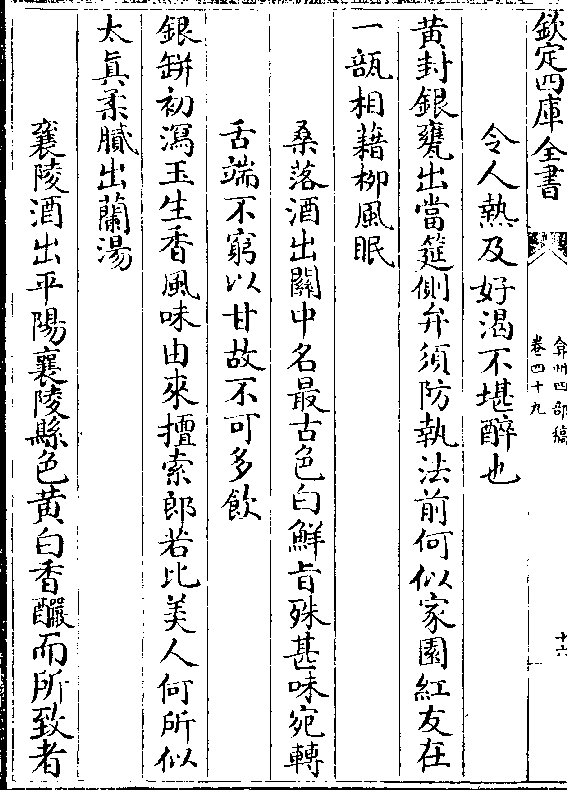 欽定四庫全書
弇州四部稿
卷四十九
十六
令人熱及好渴不堪醉也
黃封銀甕出當筵側弁須防執法前何似家園紅友在
一瓻相藉柳風眠
桑落酒出關中名最古色白鮮旨殊甚味宛轉
舌端不窮以甘故不可多飲
銀缾初瀉玉生香風味由來擅索郎若比美人何所似
太真柔膩出蘭湯
襄陵酒出平陽襄陵縣色黃白香釅而所致者